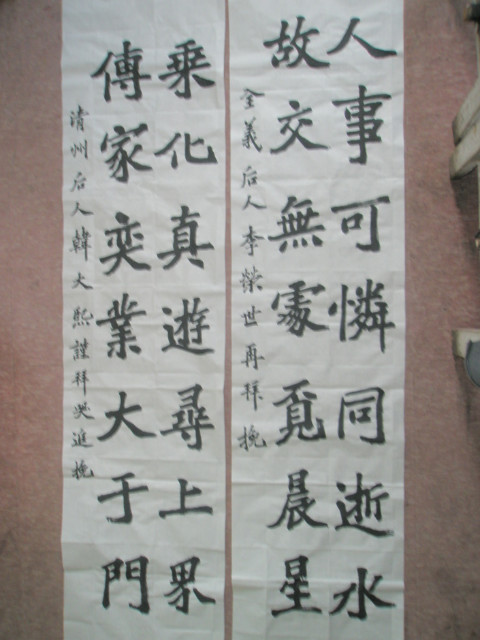 人事可憐同逝水
故交無處覓晨星
金義后人李榮世再拜挽
乘化真遊尋上界
傳家奕業大于門
清州后人韓大熙謹拜哭追挽